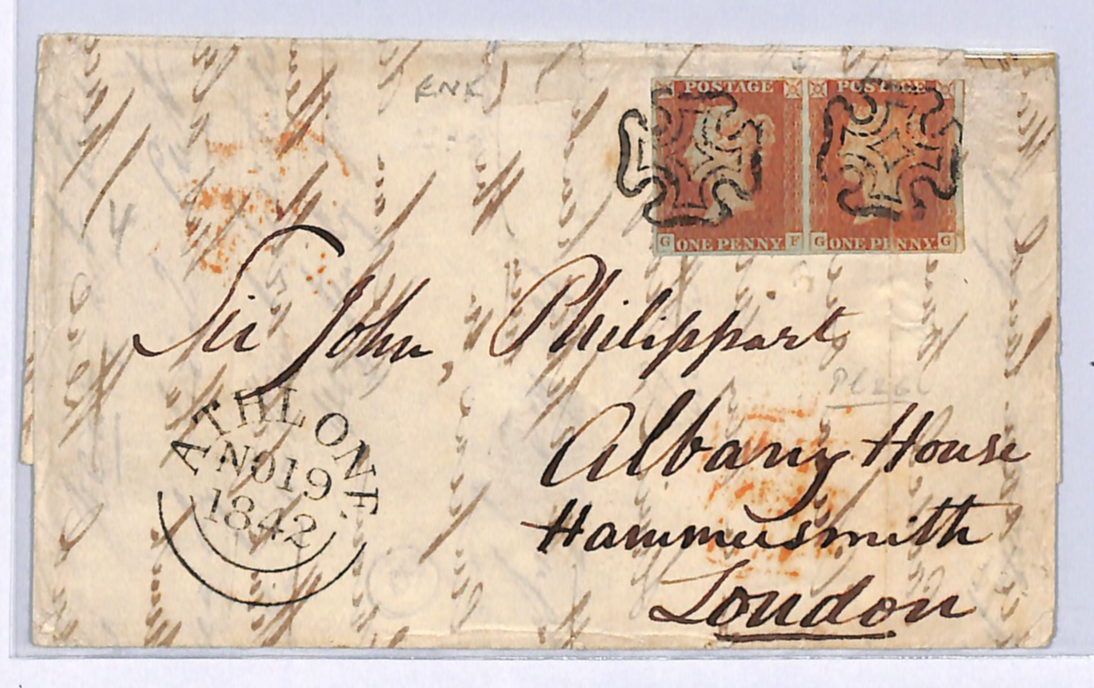 POSTAGE POSTAGE
G ONE PENNY F G ONE PENNY G
Sir John, Philippart
Albany House
Hammersmith
London
ATHLONE
NO19
1842
4